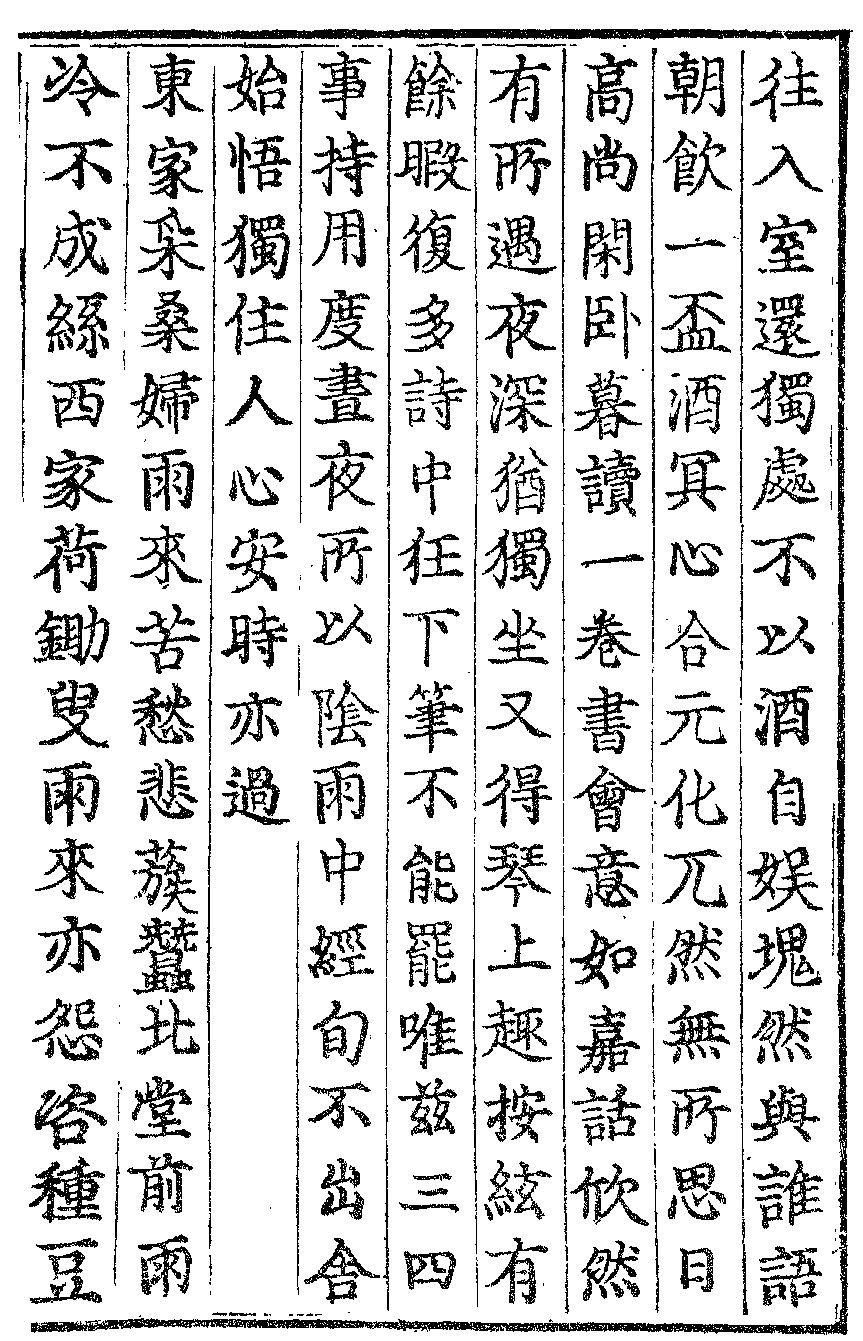 往入室還獨處不以酒自娱塊然與誰語
朝飲一盃酒冥心合元化兀然無所思日
高尚閑卧暮讀一卷書會意如嘉話欣然
有所遇夜深猶獨坐又得琴上趣按絃有
餘暇復多詩中狂下筆不能罷唯兹三四
事持用度晝夜所以陰雨中經旬不出舍
始悟獨住人心安時亦過
東家采桑婦雨來苦愁悲蔟蠶北堂前雨
冷不成絲西家荷鋤叟雨來亦怨咨種豆